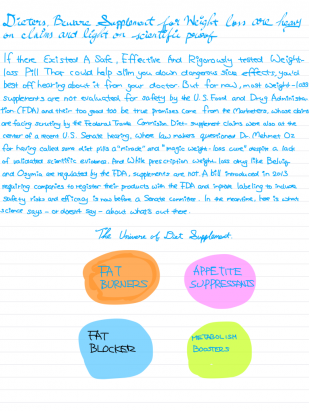 Dieters, Beware: Supplement for Weight loss are heavy
on claims and light on scientific proof
If there Existed A Safe, Effective And Rigorously tested Weight-
loss Pill That could help slim you down dangerous side effects, you'd
best off hearing about it from your doctor. But for now, most weight-loss
supplements are not evaluated for safety by the U.S. Food and Drug Administra-
tion (FDA) and their too good too be true promises come from the Marketers, whose claims
are facing scrutiny by the Federal Trade Commission. Diet-supplement claims were also at the
center of a recent U.S. Senate hearing, where law makers questioned Dr. Mehmet Oz
for having called some diet pills a "miracle" and "magic weight-loss cure" despite a lack
of validated scientific evidence. And While prescription weight loss drug like Belviq
and Qsymia are regulated by the FDA, supplements are not. A bill introduced in 2013
requiring companies to register their products with the FDA and improve labelling to include
safety risks and efficacy is now before a Senate committee. In the meantime, here is what
science says - or doesn't say - about what's out there.
The Universe of Diet Supplement.
FAT
BURNERS
APPETITE
SUPPRESSANTS
FAT
BLOCKER
METABOLISM
BOOSTERS